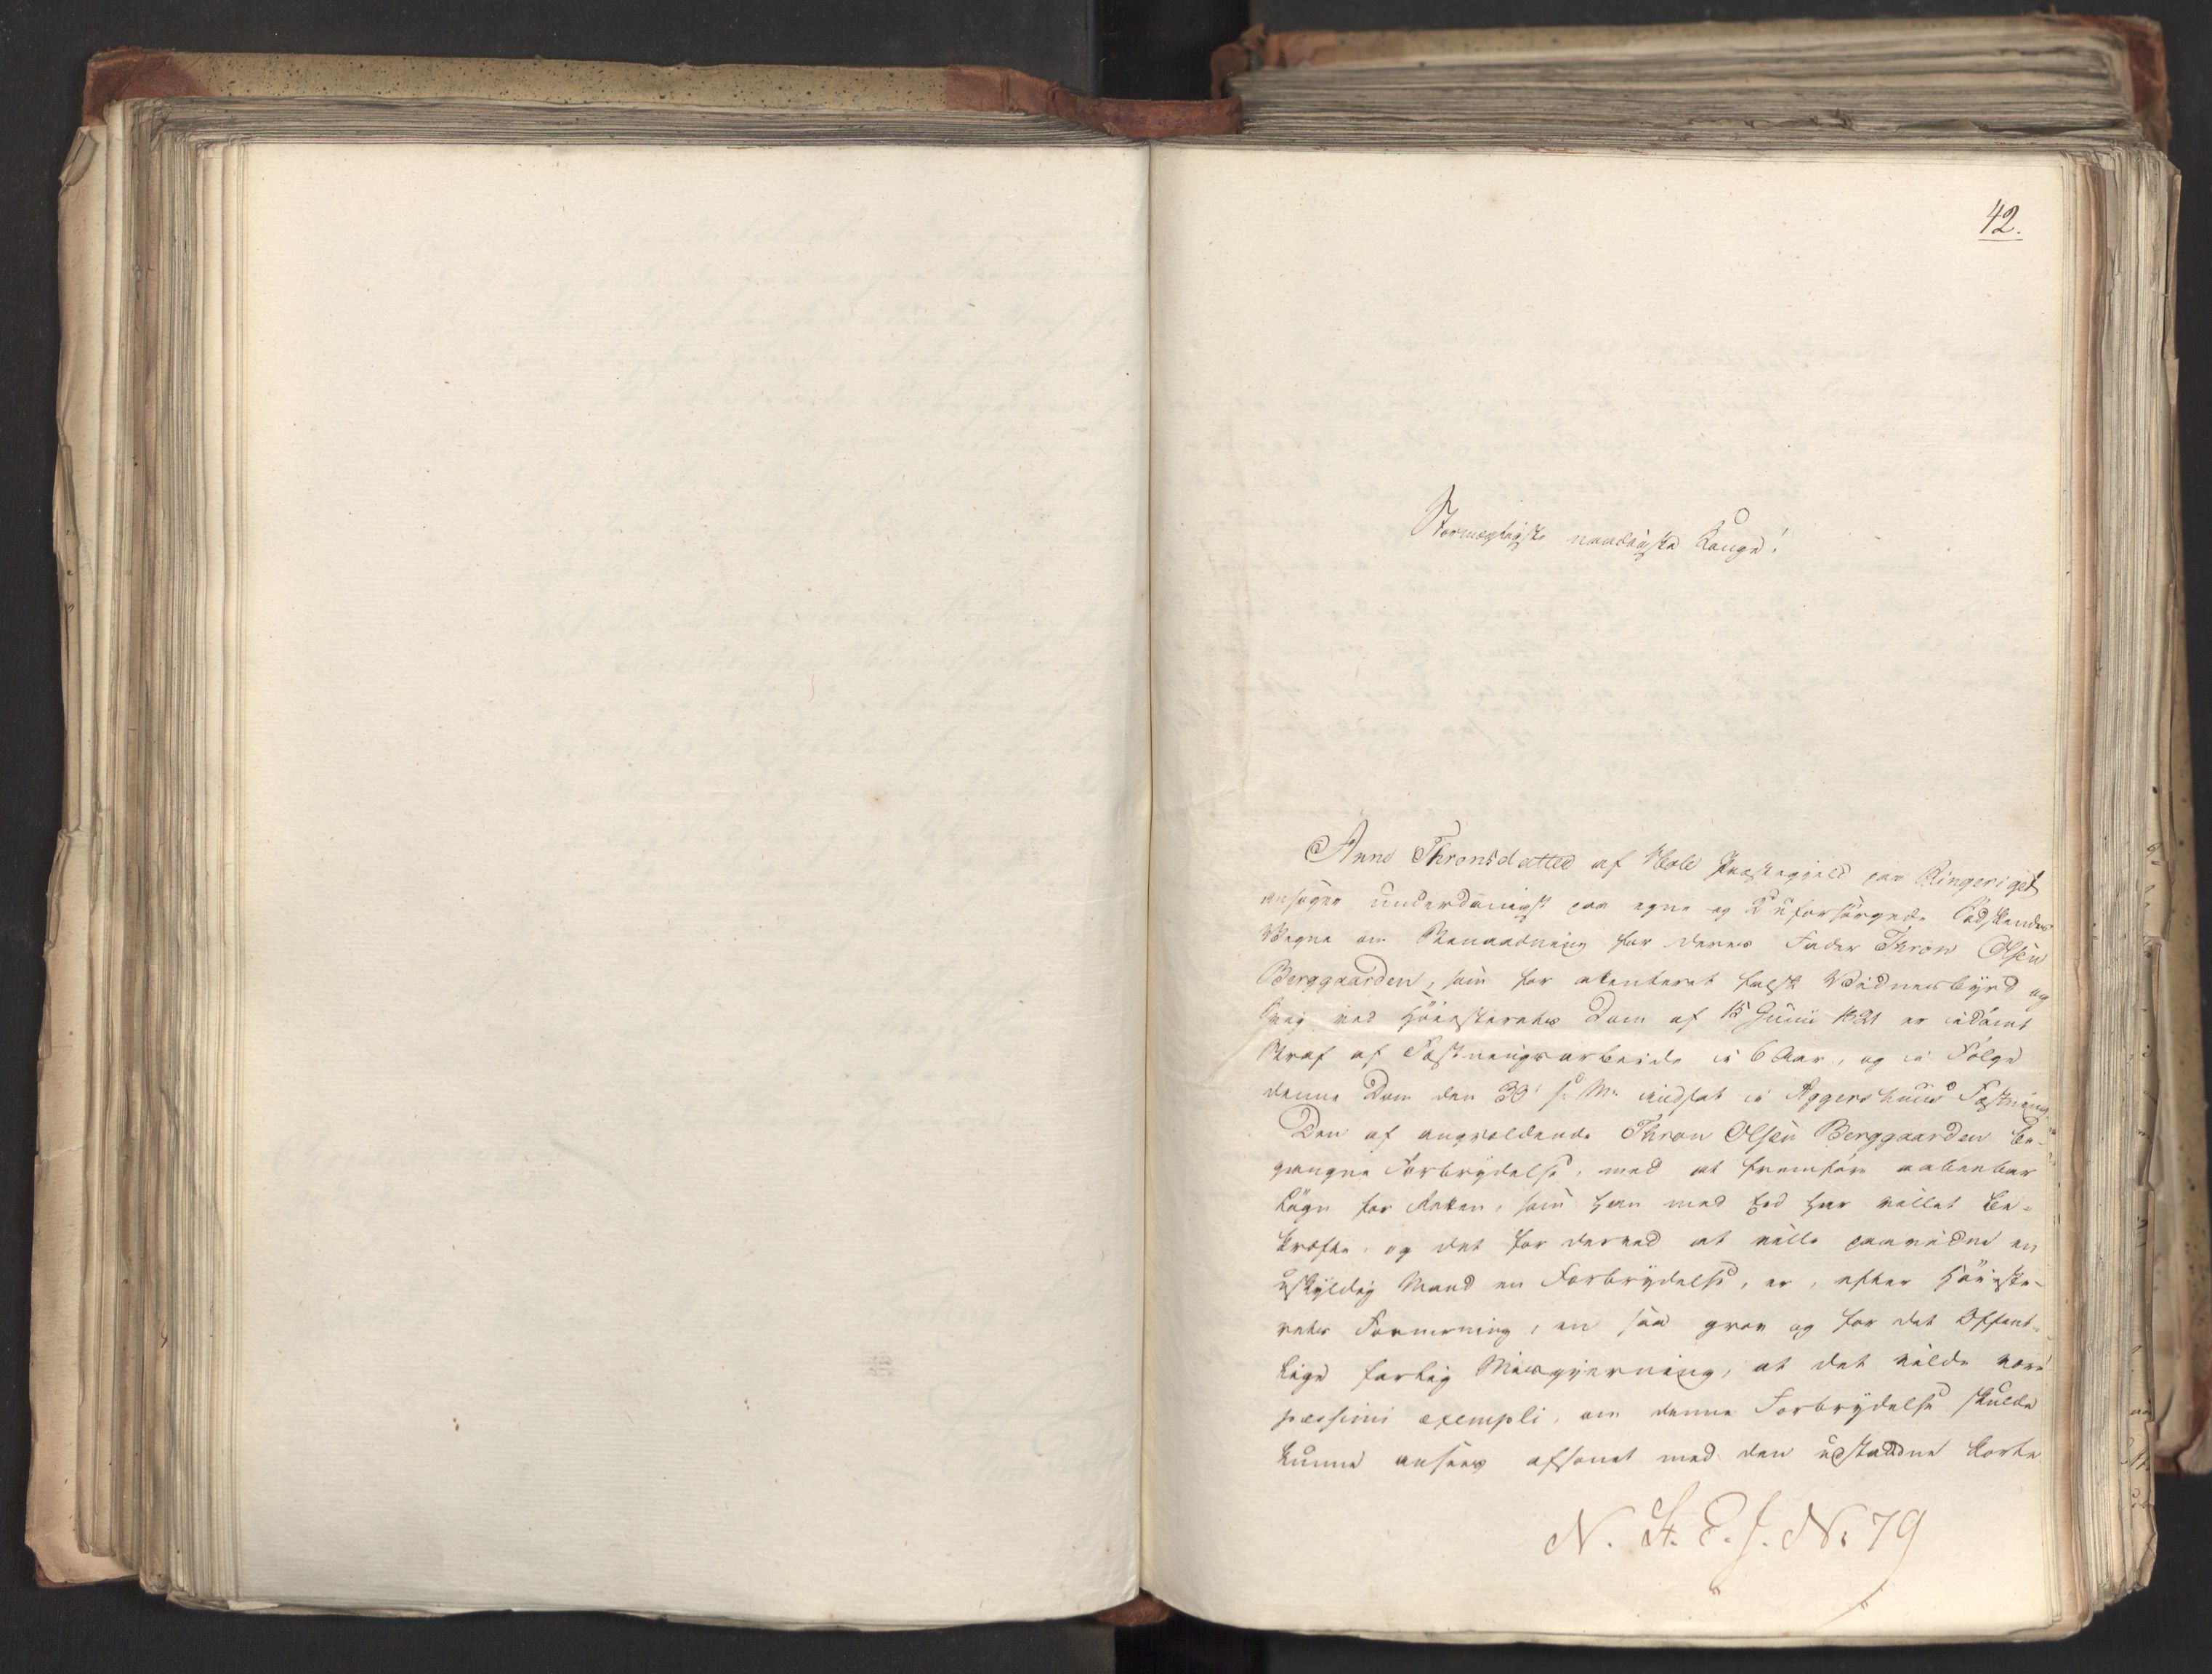 42.
Stormægtigste naadigste Konge!
Anne Thronsdatter af Hole Præstegield paa Ringeriget
ansøger underdanigst paa egne og 2 uforsørgede Sødskendes
Vegne om Benaadning for deres Fader Thron Olsen
Berggaarden, som for atenteret falsk Vidnesbyrd og
ved Høiesterets Dom af 15 Junii 1821 er idømt
Straf af Fæstningsarbeide i 6 Aar, og i Følge
denne Dom den 30 s. M. indsat i Aggershuus Fæstning.
Den af angieldende Thron Olsen Berggaarden be-
gangne Forbrydelse, med at fremføre aabenbar
Løgn for Retten, som han med Eed har villet be-
kræfte, og det for derved at ville paavidne en
uskyldig Mand en Forbrydelse, er, efter Høieste-
rets Formening, en saa grov og for det Offent-
lige farlig Misgjerning, at det vilde være
pessimi exempli, om denne Forbrydelse skulde
kunne ansees afsonet med den udstandne korte
N. St. E. J. No 79